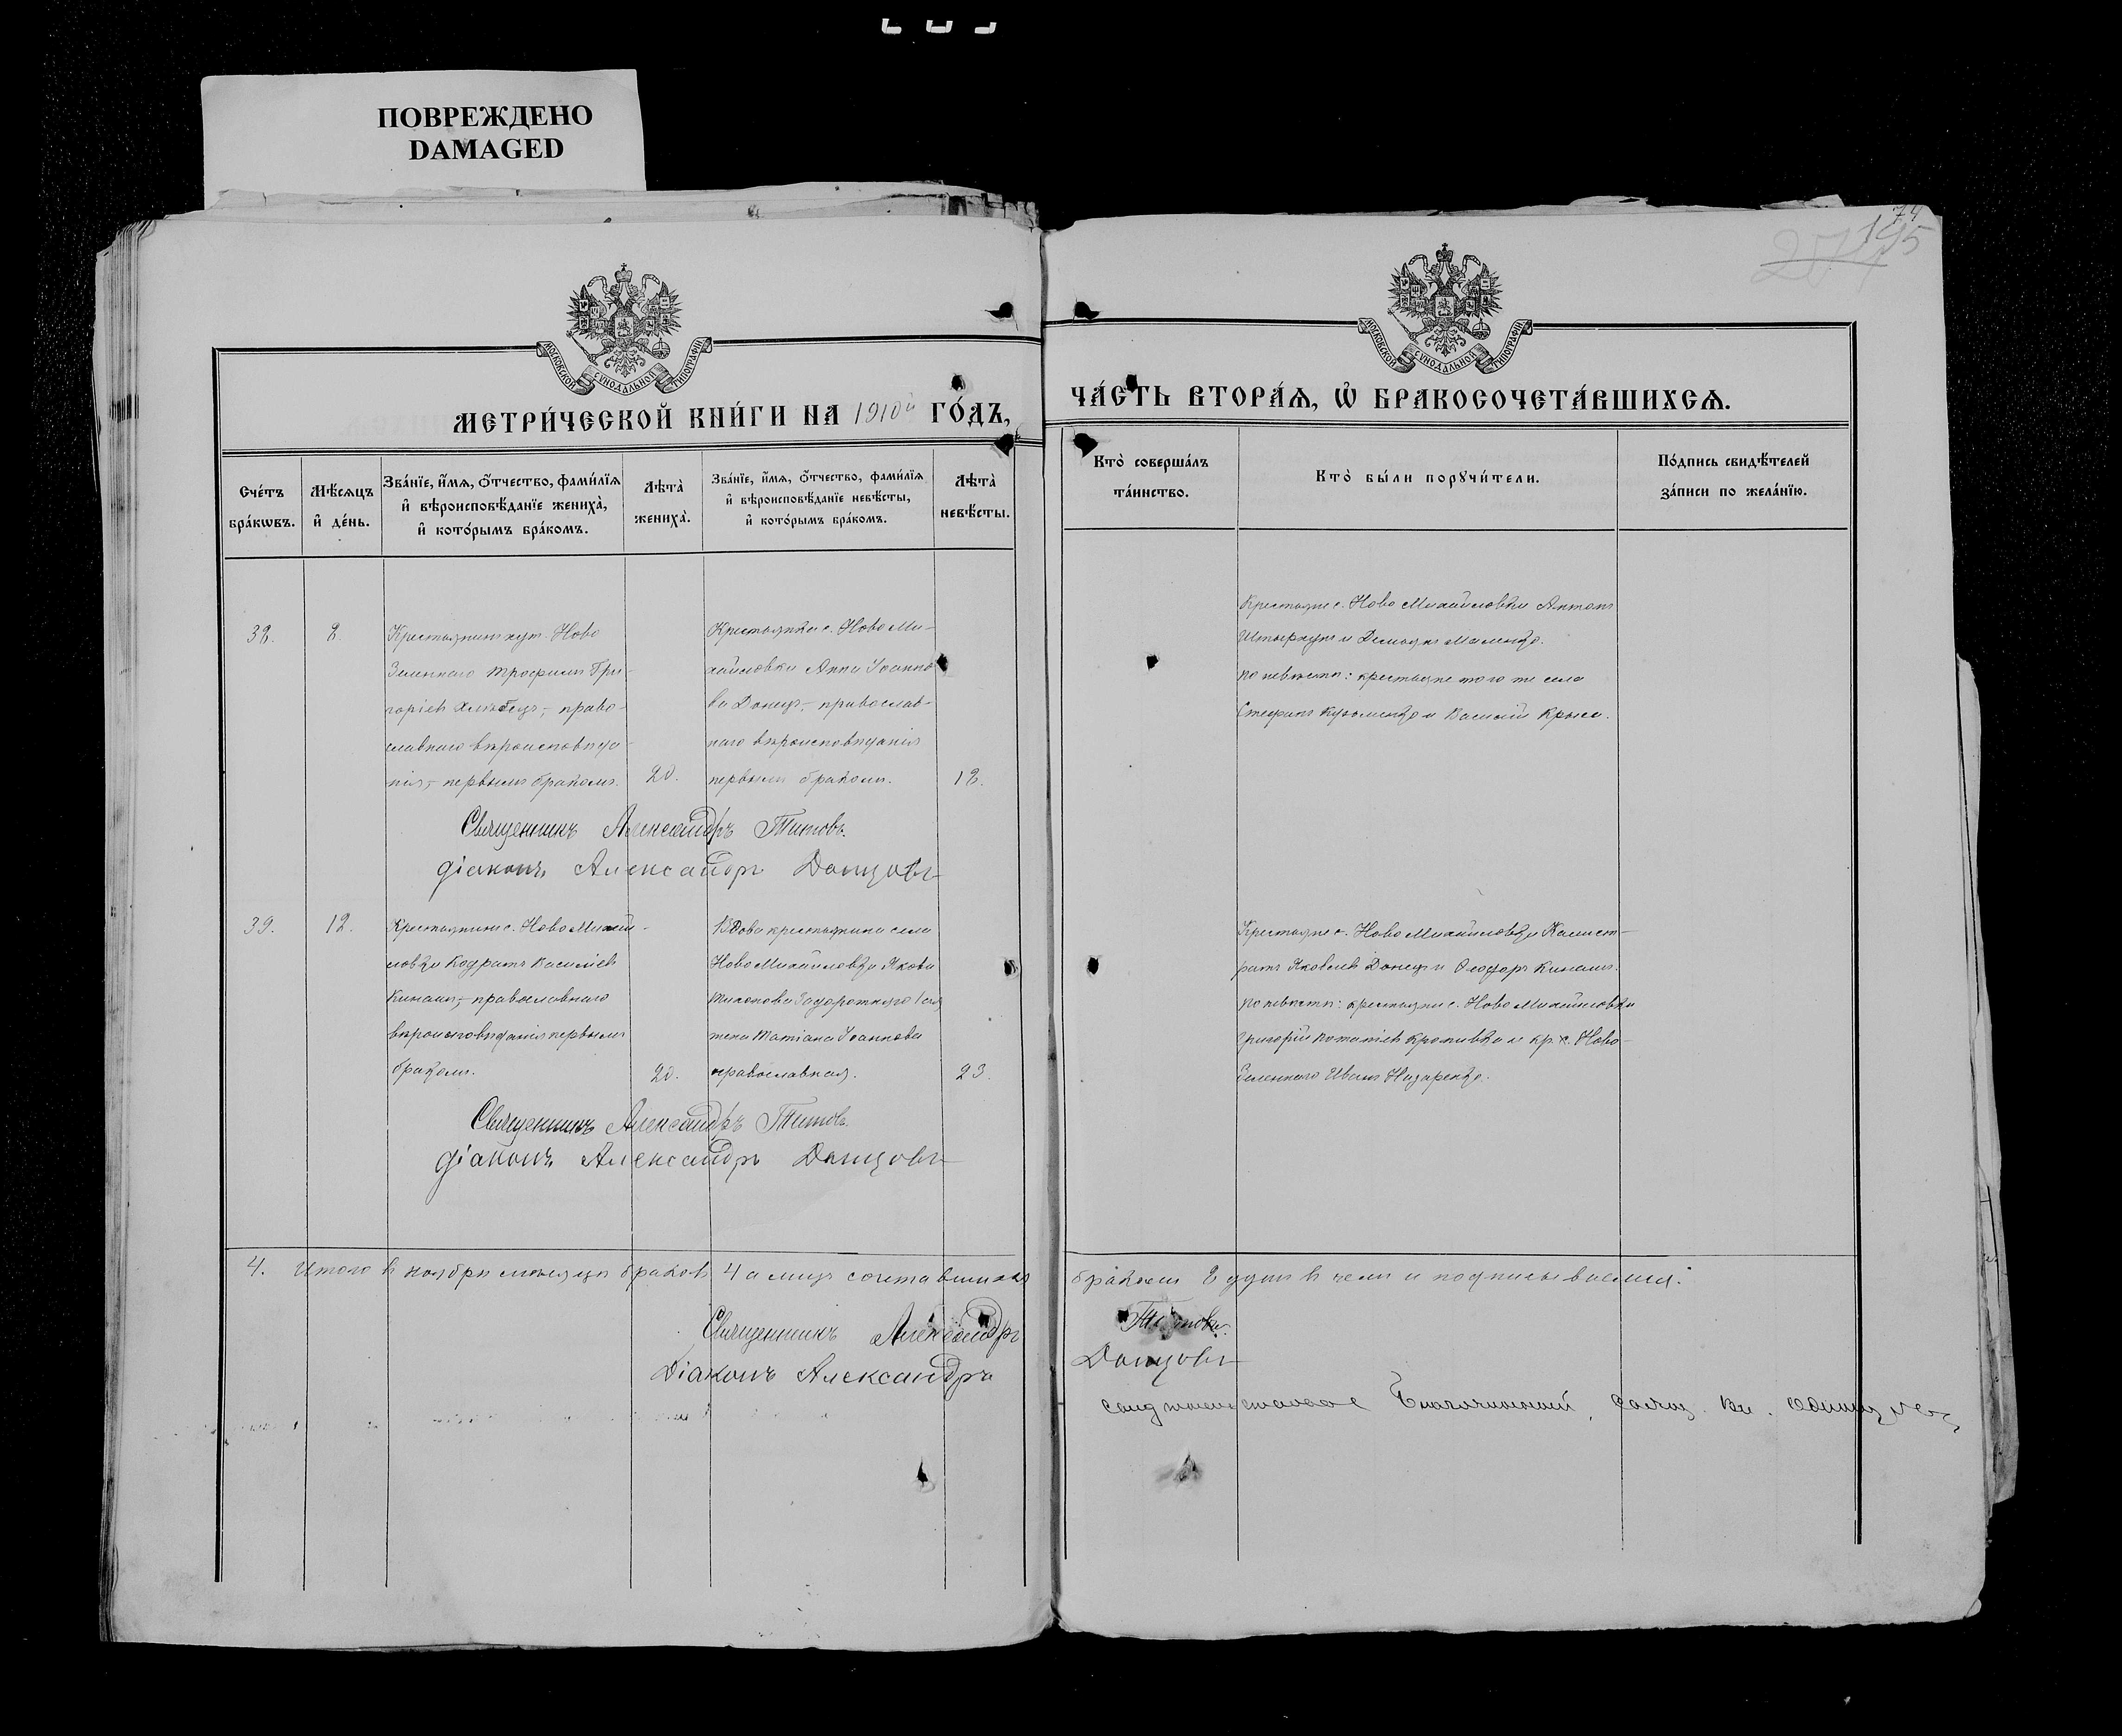 ПОВРЕЖДЕНО
DAMAGED
74
195
МОСКОВСКОЙ СѴНОДАЛЬНОЙ ТИПОГРАФІИ
МОСКОВСКОЙ СѴНОДАЛЬНОЙ ТИПОГРАФІИ
МЕТРИ́ЧЕСКОЙ КНИ́ГИ НА 1910й ГО́ДЪ,
ЧА́СТЬ ВТОРА́Ѧ, Ѽ БРАКОСОЧЕТА́ВШИХСѦ.
Сче́тъ бра́кѡвъ.
Мѣ́сѧцъ и҆ де́нь.
Зва́нїе, и҆́мѧ, ѻ҆́тчество, фами́лїѧ
и҆ вѣроисповѣ́данїе жениха̀,
и҆ кото́рымъ бра́комъ.
Лѣта̀ жениха̀.
Зва́нїе, и҆́мѧ, ѻ҆́тчество, фами́лїѧ
и҆ вѣроисповѣ́данїе невѣ́сты,
и҆ кото́рымъ бра́комъ.
Лѣта̀ невѣ́сты.
Кто̀ соверша́лъ та́инство.
Кто̀ бы́ли порꙋчи́тели.
По́дпись свидѣ́телей за́писи по жела́нїю.
38.
8.
Крестьянин хут. Ново
Зеленнаго Трофим Гри-
горіев Хлѣбец,- право-
славнаго вѣроисповѣда-
нія,- первым браком.
20.
Крестьянка с. Ново Ми-
хайловки Анна Іоанно
ва Донец,- православ-
наго вѣроисповѣданія
первым браком.
18.
Крестьяне с. Ново Михайловки Антон
и Маленко.
по невѣстѣ: крестьяне того же села
Стефан Кузьменко и Василий Крыса.
Священникъ Александръ Титовъ.
діаконъ Александръ Донцовъ
39.
12.
Крестьянин с. Ново Михай-
ловки Кодрат Василіев
Кинаш,- православнаго
вѣроисповѣданія первым
браком.
20.
Вдова крестьянина села
Ново Михайловки Якова
Тихонова Задорожнаго
жена Татіана Іоаннова
православная.
23.
Крестьяне с. Ново Михайловки Калист-
рат Яковлев Донец и Ѳеодор Кинаш.
по невѣстѣ: крестьяне с. Ново Михайловки
Григорій Потапіев Кропивка и кр. х. Ново-
Зеленнаго Иван Назаренко.
Священникъ Александръ Титовъ.
діаконъ Александръ Донцовъ
4. Итого в ноябрѣ мѣсяцѣ браков 4 а лиц сочетавшихся браком 8 душ в чем и подписываемся:
Священникъ Александръ Титовъ.
Діаконъ Александръ Донцовъ
Благочинный,